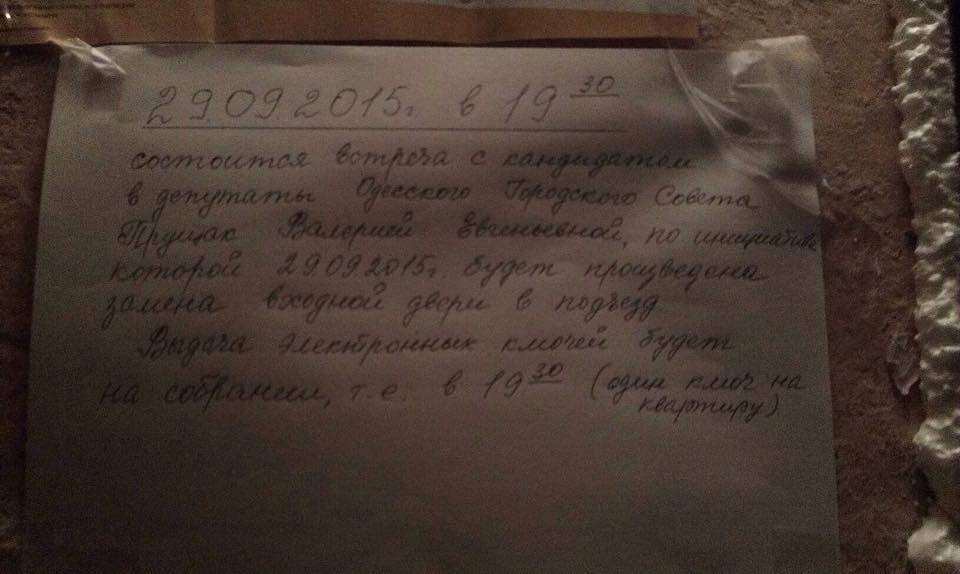 29.09.2015г в 19 30
состоится встреча с кандидатом
в депутаты Одесского Городского Совета
Прущак Валерией Евгеньевной, по инициативе
которой 29.09.2015г. будет произведена
замена входной двери в подъезд
Выдача электронных ключей будет
на собрании, т.е. в 19 30 (один ключ на
квартиру)